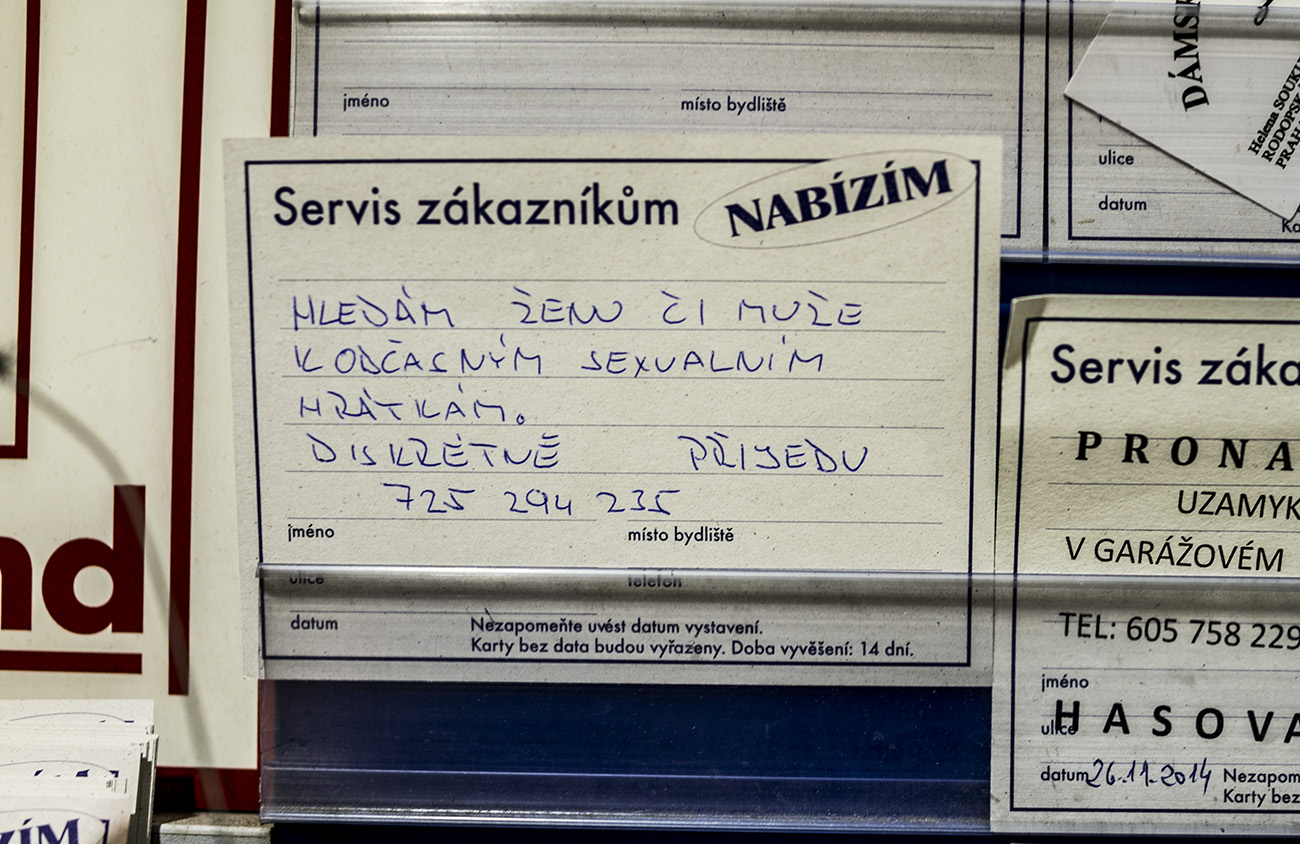 jméno místo bydliště
DÁMSK
Helena SOUKU
RODOPSK
PRAH
ulice
datum
Ka
Servis zákazníkům NABÍZÍM
HLEDÁM ŽENU ČI MUŽE
K OBČASNÝM SEXUALNÍM
HRÁTKÁM.
DISKRÉTNĚ PŘIJEDU
725 294 235
jméno místo bydliště
ulice telefon
datum Nezapomeňte uvést datum vystavení.
Karty bez data budou vyřazeny. Doba vyvěšení: 14 dní.
Servis záka
PRONA
UZAMYK
V GARÁŽOVÉM
TEL: 605 758 229
jméno
ulice HASOVA
datum 26.11.2014 Nezapom
Karty bez
nd
ZÍM